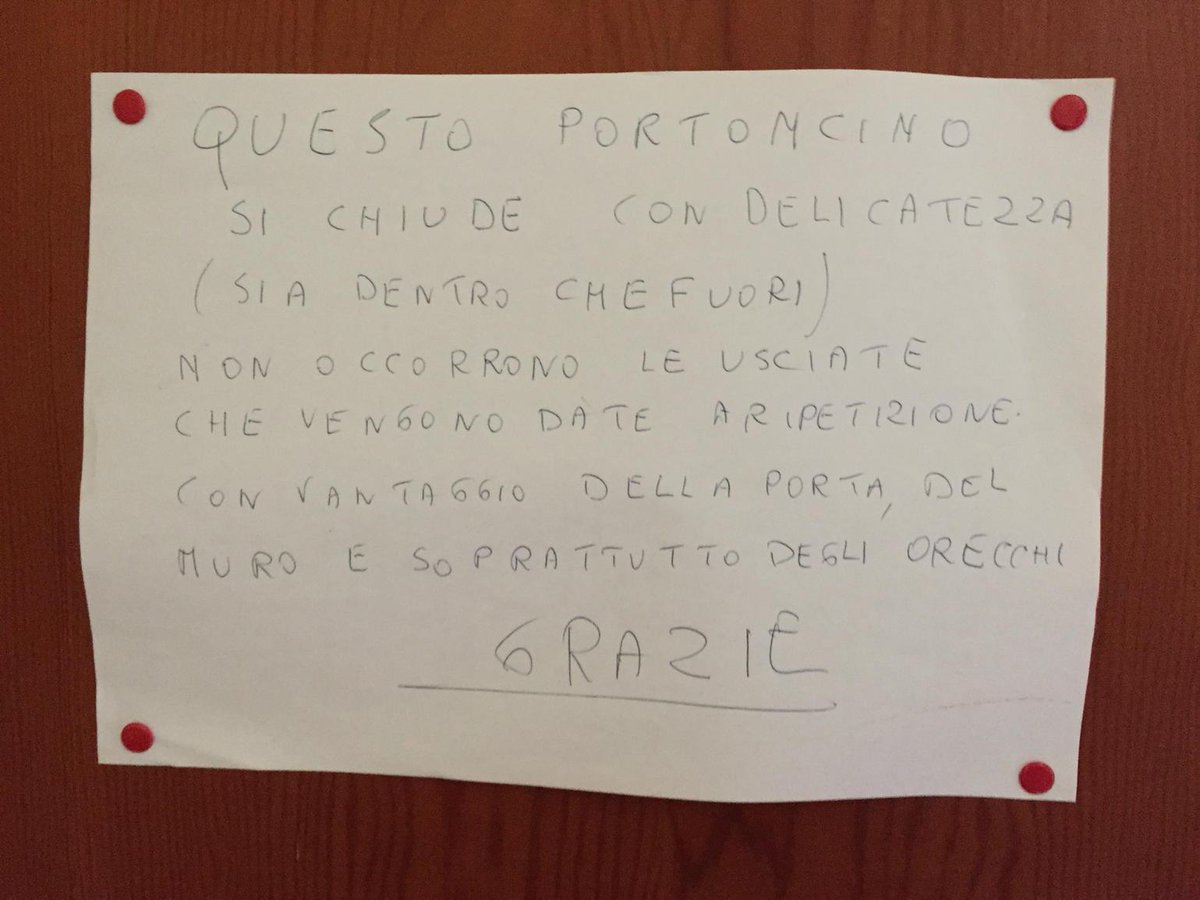 QUESTO PORTONCINO
SI CHIUDE CON DELICATEZZA
(SIA DENTRO CHE FUORI)
NON OCCORRONO LE USCIATE
CHE VENGONO DATE A RIPETIZIONE.
CON VANTAGGIO DELLA PORTA, DEL
MURO E SOPRATTUTTO DEGLI ORECCHI
GRAZIE